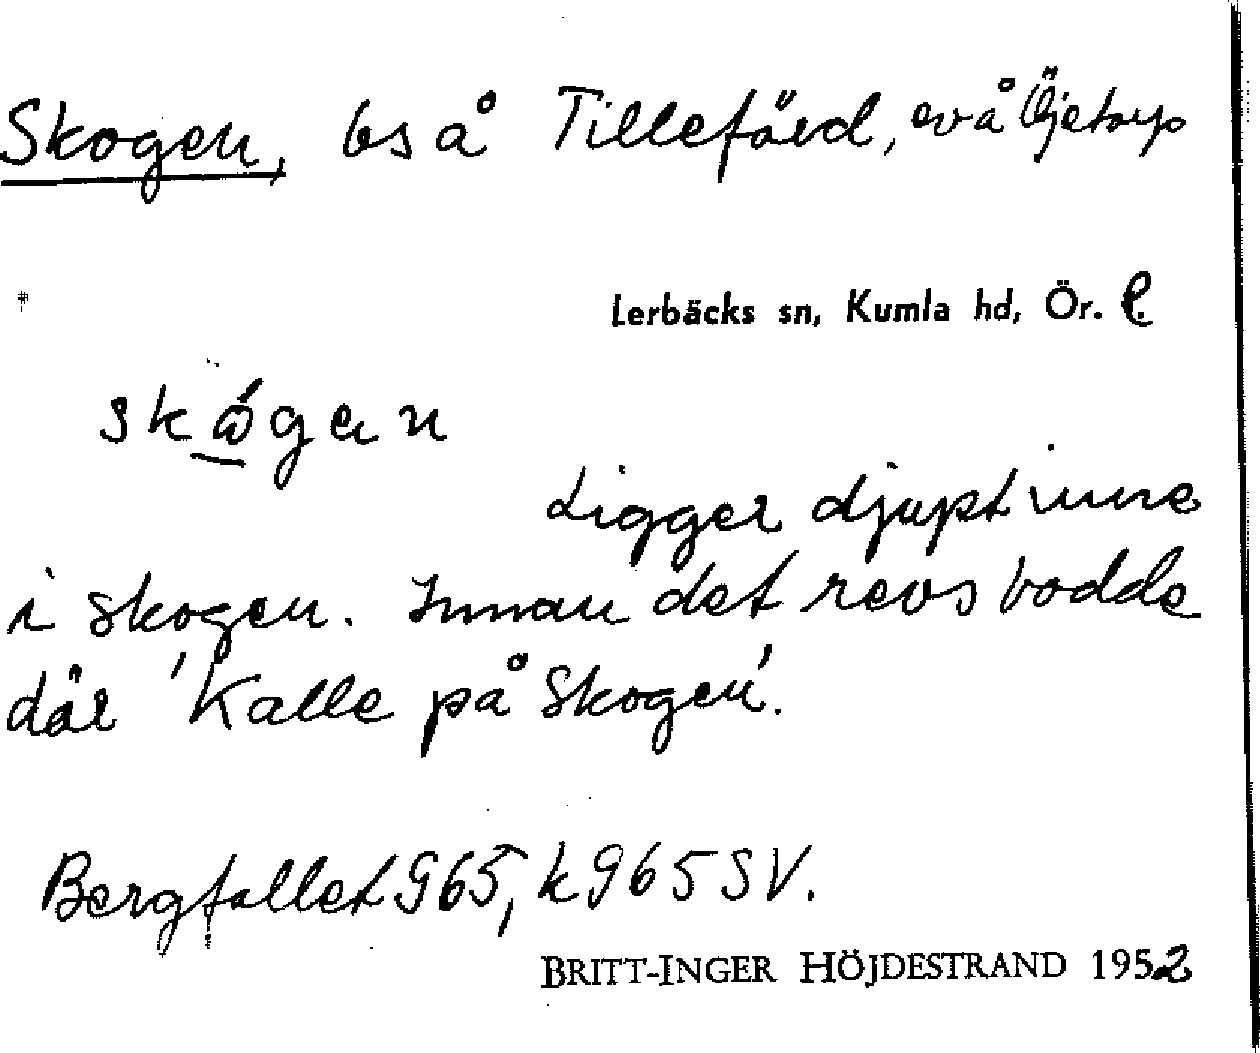 Skogen, bs å Tilleförd, ev å Öjetorp
Lerbäcks sn, Kumla hd, Ör. l.
Ligger djupt inne
i skogen. Innan det revs bodde
där 'Kalle på Skogen'.
Bergfallet 965, k 965 SV.
BRITT-INGER HÖJDESTRAND 1952